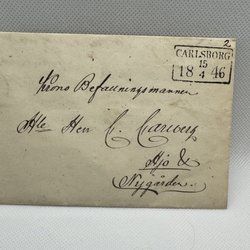 2
CARLSBORG
15
18 4 46
Krono Befallningsmannen
Hle Herr C.
Hjo &
Nygården